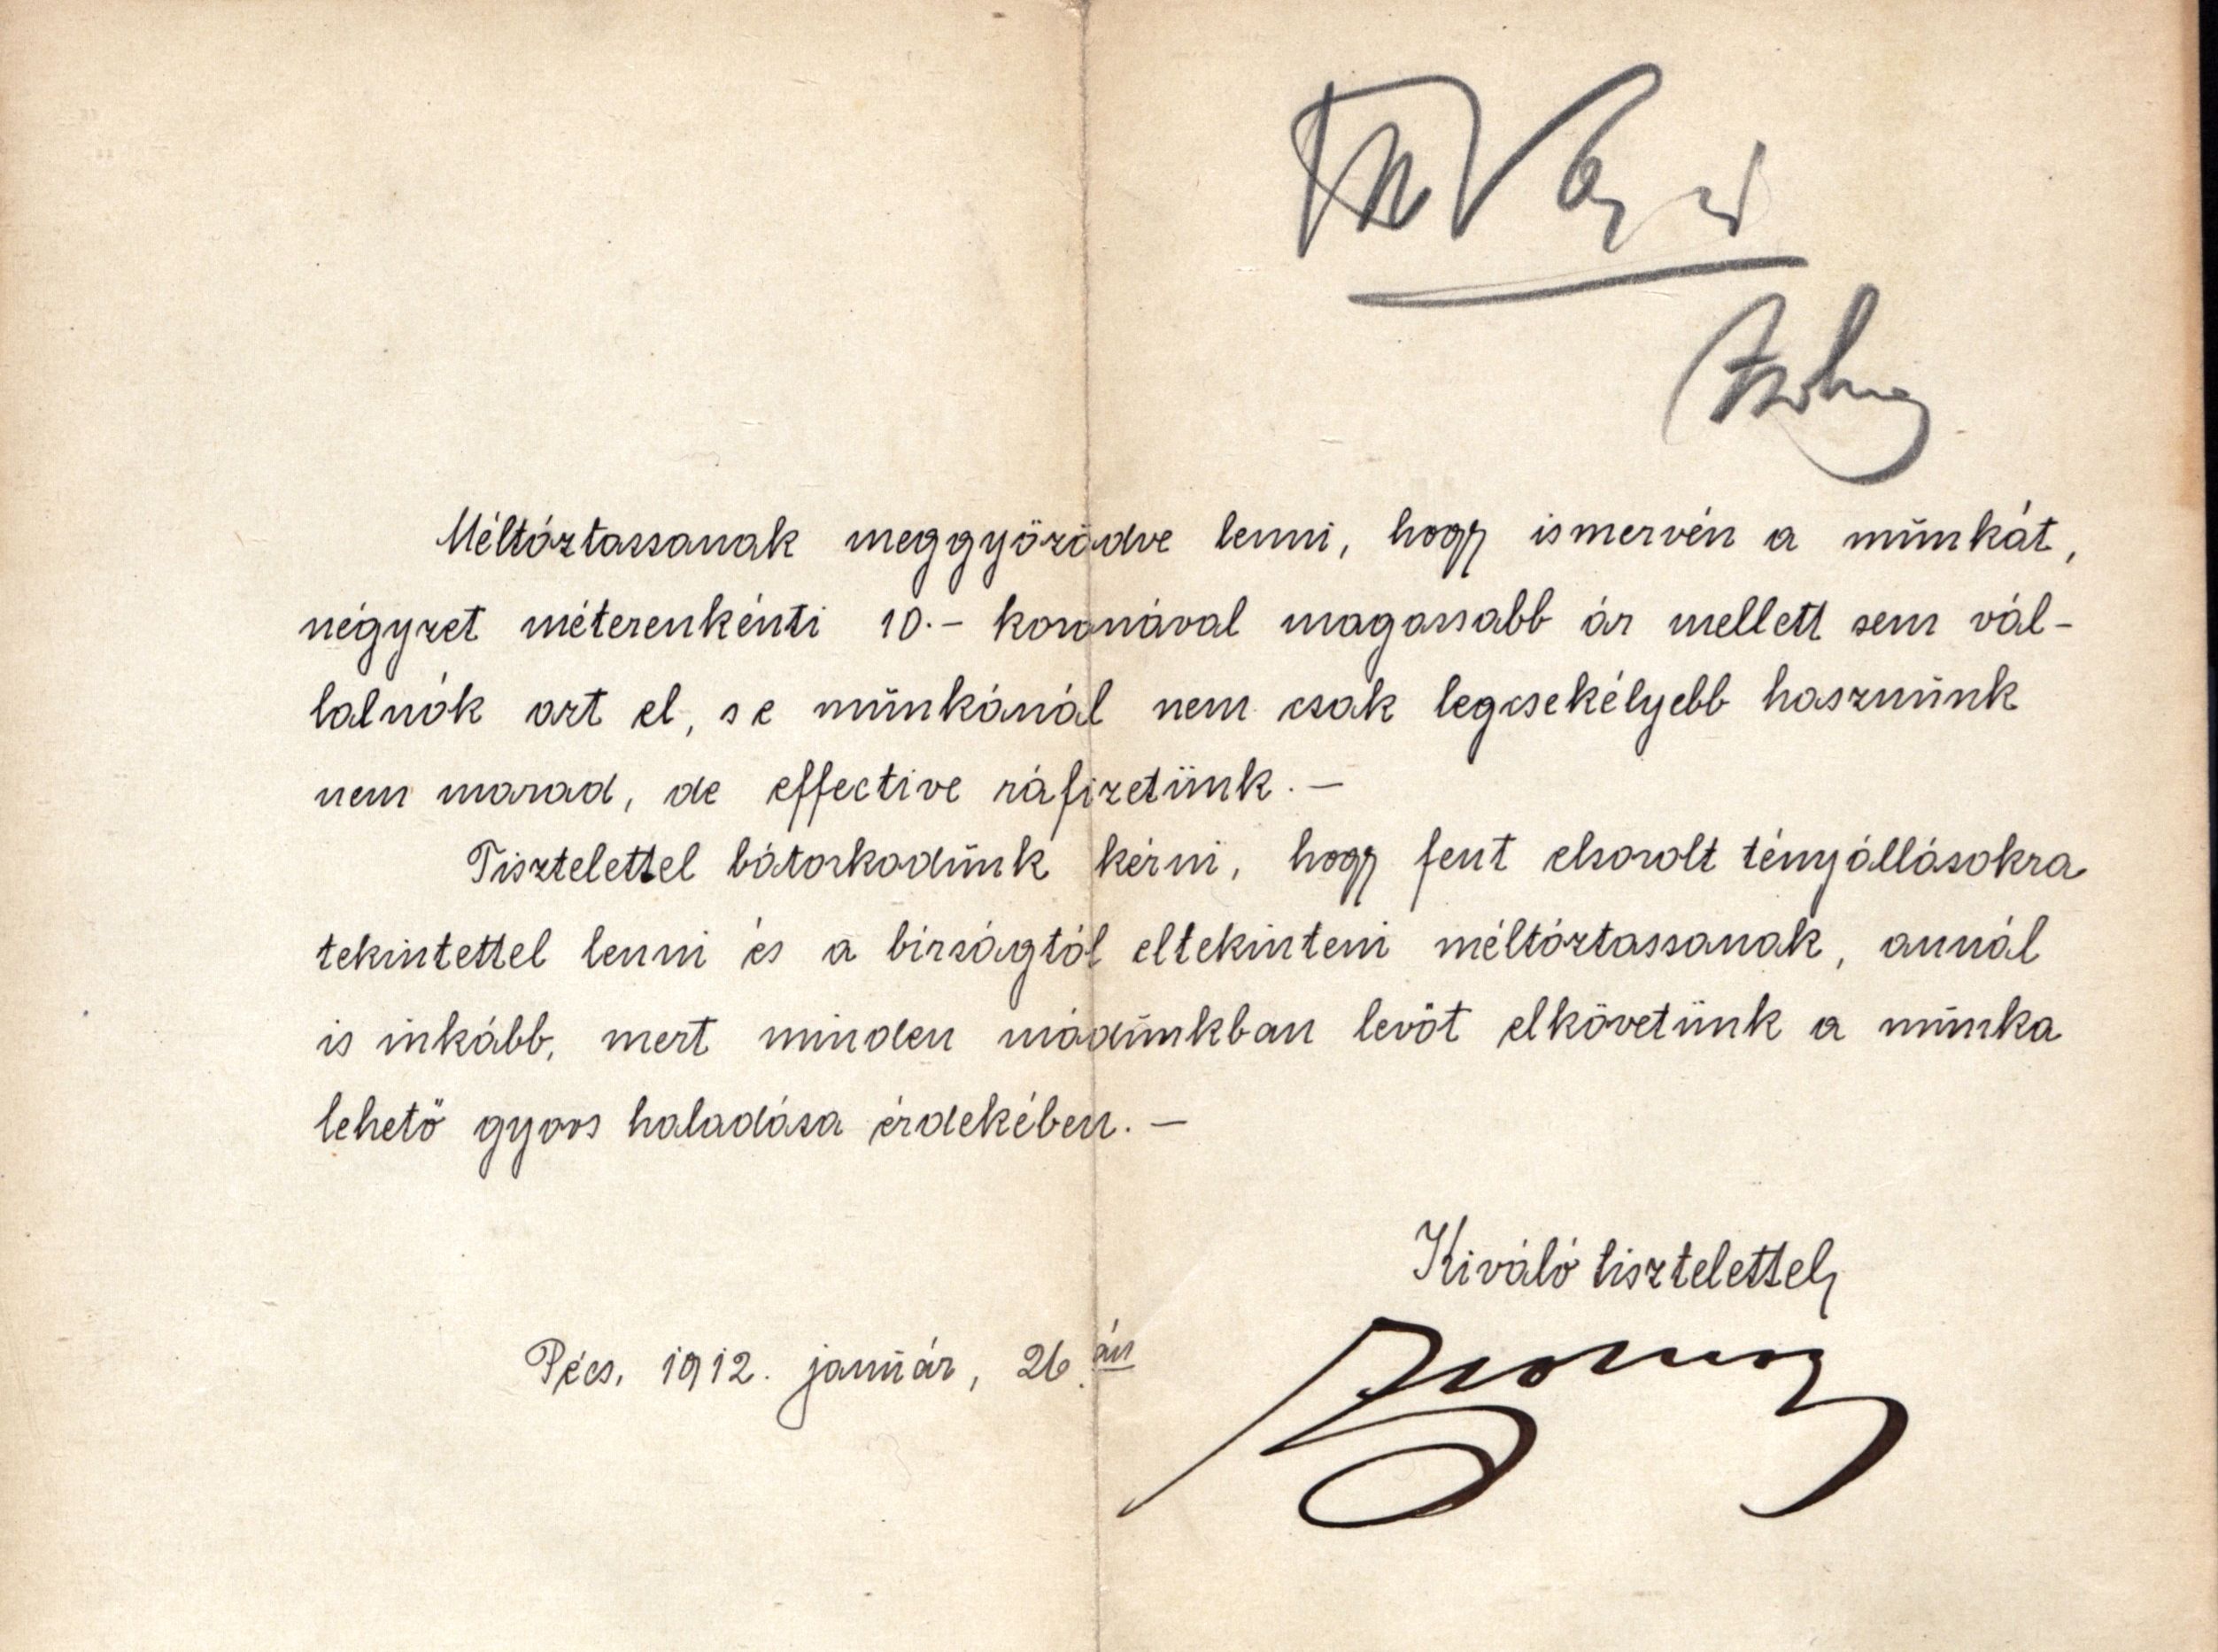 Méltóztassanak meggyőződve lenni, hogy ismervén a munkát,
négyzet méterenkénti 10.- koronával magassabb ár mellett sem vál-
lalnók azt el, s e munkánál nem csak legcsekélyebb hasznunk
nem marad, de effective ráfizetünk. —
Tisztelettel bátorkodunk kérni, hogy fent elsorolt tényállásokra
tekintettel lenni és a birságtól eltekinteni méltóztassanak, annál
is inkább, mert minden módunkban levőt elkövetünk a munka
lehető gyors haladása érdekében. —
Kiváló tisztelettel,
Pécs, 1912. január, 26.án